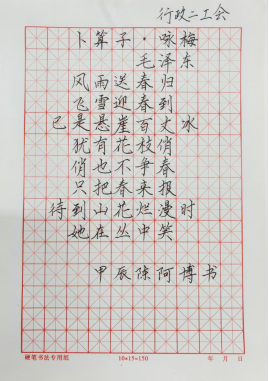 行政二工会
卜算子·咏梅
毛泽东
风雨送春归
飞雪迎春到
已是悬崖百丈冰
犹有花枝俏
俏也不争春
只把春来报
待到山花烂漫时
她在丛中笑
甲辰陈阿博书
硬笔书法专用纸 10*15=150 年 月 日